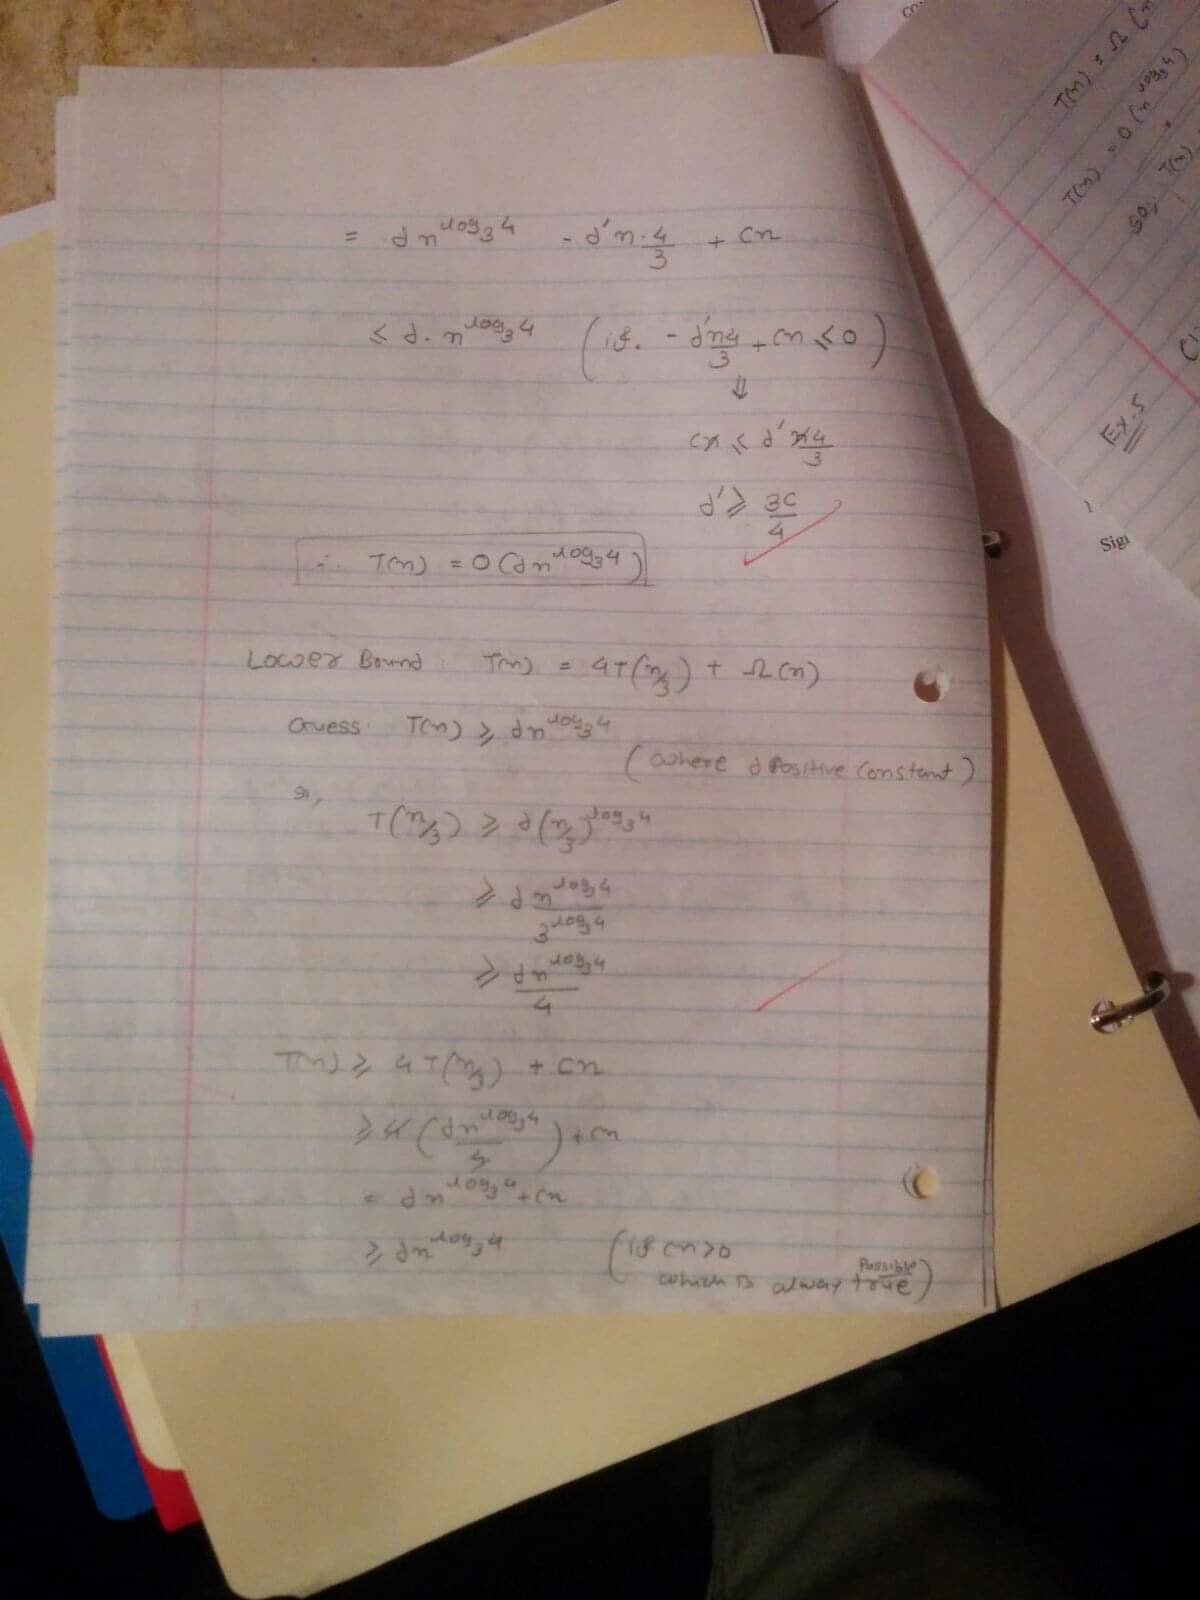 = dn^log₃4 - d'n·4/3 + cn
≤ d·n^log₃4 (if. - d'n4/3 + cn ≤ 0)
⇓
cn ≤ d'n4/3
d' ≥ 3c/4
∴ T(n) = O(dn^log₃4)
Lower Bound: T(n) = 4T(n/3) + Ω(n)
Guess: T(n) ≥ dn^log₃4
(where d Positive Constant)
T(n/3) ≥ d(n/3)^log₃4
≥ dn^log₃4/3^log₃4
≥ dn^log₃4/4
T(n) ≥ 4T(n/3) + cn
≥ 4(dn^log₃4/4) + cn
= dn^log₃4 + cn
≥ dn^log₃4 (if cn>0
Possible
which is alway true)
T(n) = Ω(n
T(n) = O(n^log₃4)
so, T(n)
Ex-5
Sign